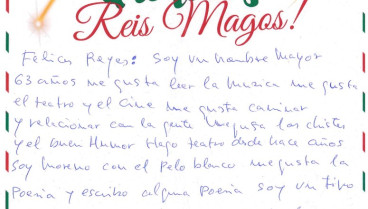 Reis Magos!
Felices Reyes: Soy un hombre mayor
63 años me gusta leer la musica me gusta
el teatro y el Cine me gusta caminar
y relacionar con la gente me gusta los chistes
y el buen Humor Hago teatro desde hace años
Soy moreno con el pelo blanco me gusta la
Poesia y escribo alguna Poesia soy un tipo